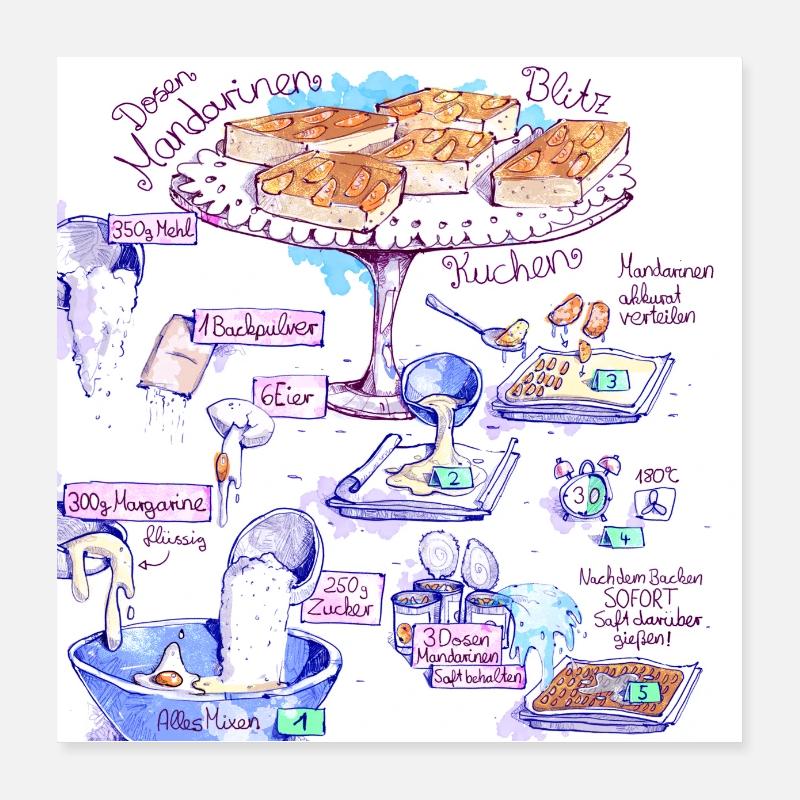 Dosen
Mandarinen
Blitz
Kuchen
350g Mehl
1 Backpulver
6 Eier
300g Margarine
flüssig
250g
Zucker
Alles Mixen
1
2
Mandarinen
akkurat
verteilen
3
30
180°C
4
3 Dosen
Mandarinen
Saft behalten
Nach dem Backen
SOFORT
Saft darüber
gießen!
5